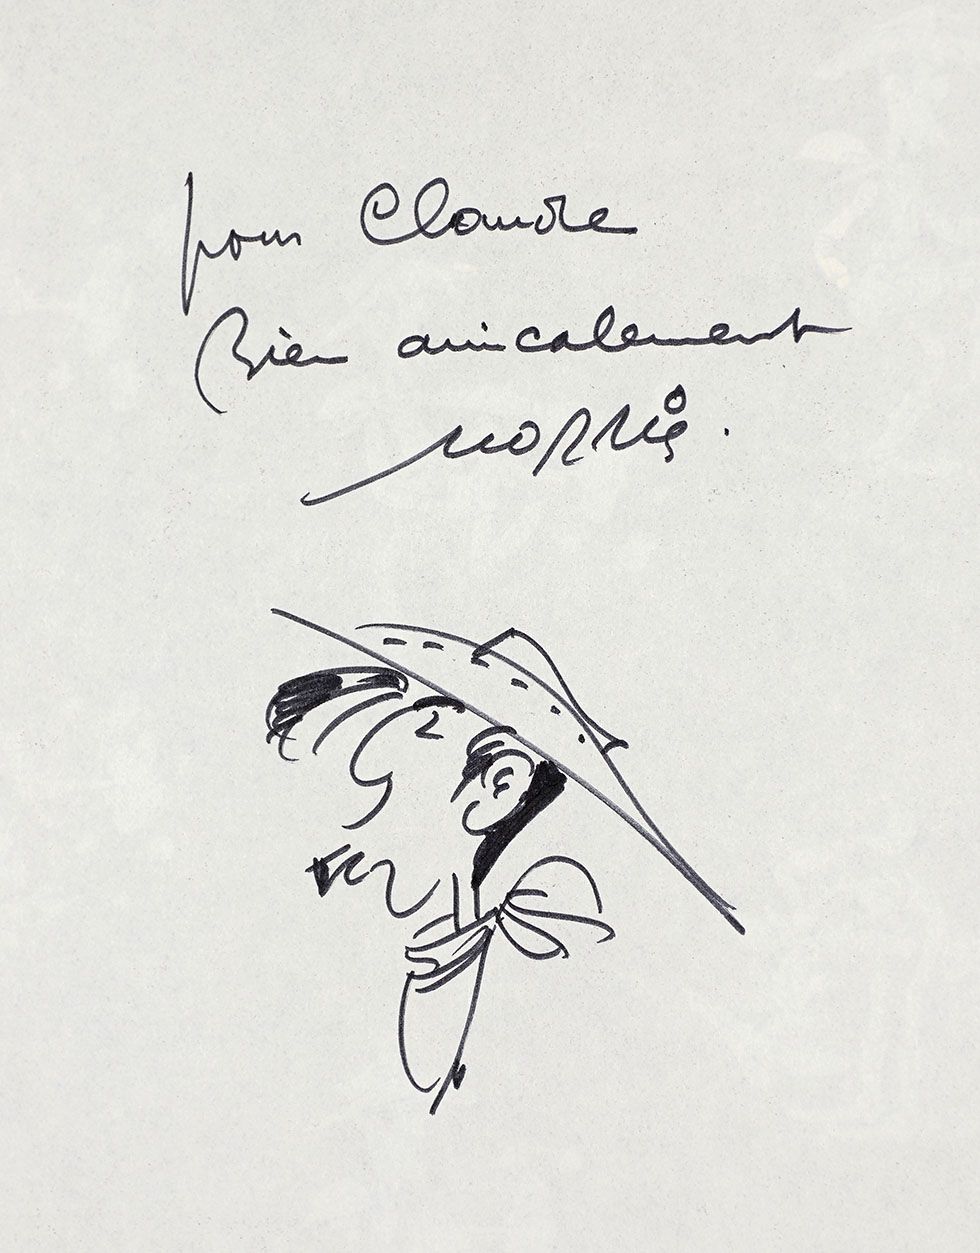 pour Claude
Bien amicalement
MORRIS.